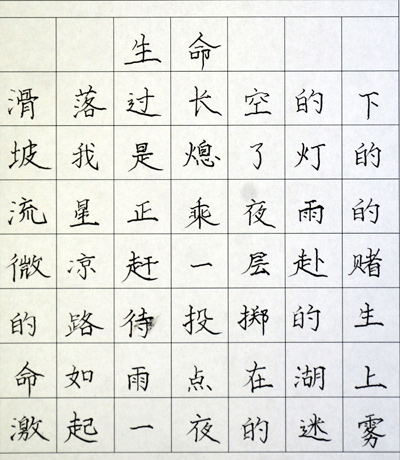 生命
滑落过长空的下
坡我是熄了灯的
流星正乘夜雨的
微凉赶一层赴赌
的路待投掷的生
命如雨点在湖上
激起一夜的迷雾